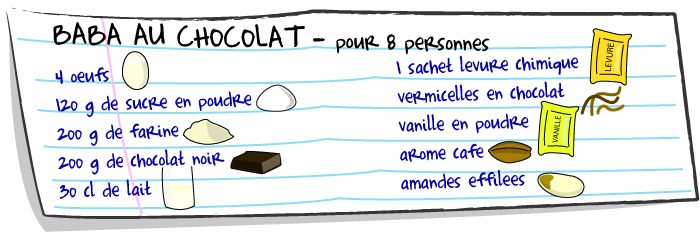 BABA AU CHOCOLAT - pour 8 personnes
4 oeufs
120 g de sucre en poudre
200 g de farine
200 g de chocolat noir
30 cl de lait
1 sachet levure chimique
LEVURE
vermicelles en chocolat
vanille en poudre
VANILLE
arome cafe
amandes effilees